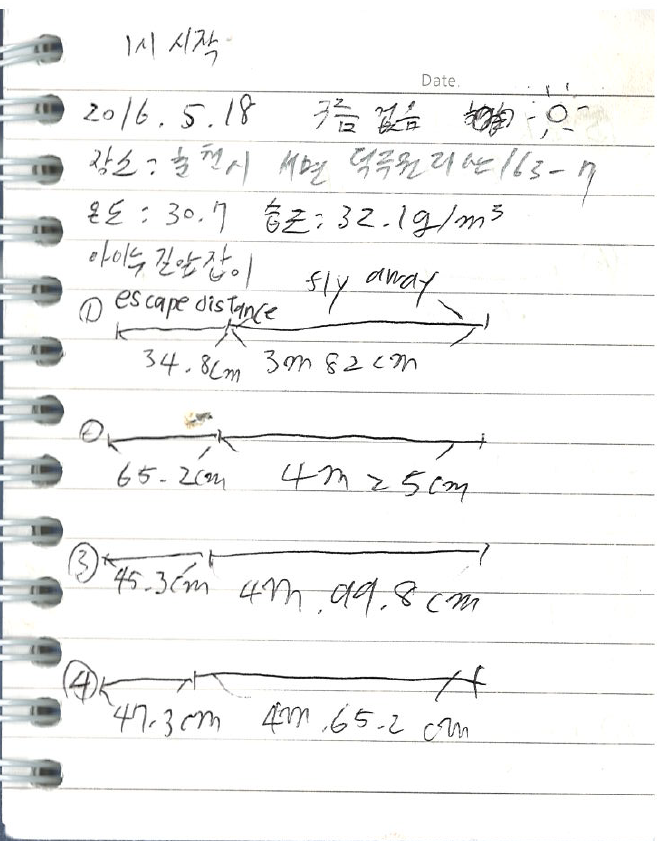 1시 시작
Date.
2016. 5. 18 구름 없음
장소 : 춘천시 서면 덕두원리 산 163-7
온도 : 30.7 습도 : 32.1g/m³
아이누길앞잡이
① escape distance fly away
34.8cm 3m 82cm
②
65.2cm 4m 25cm
③
45.3cm 4m.99.8cm
④
47.3cm 4m.65.2 cm